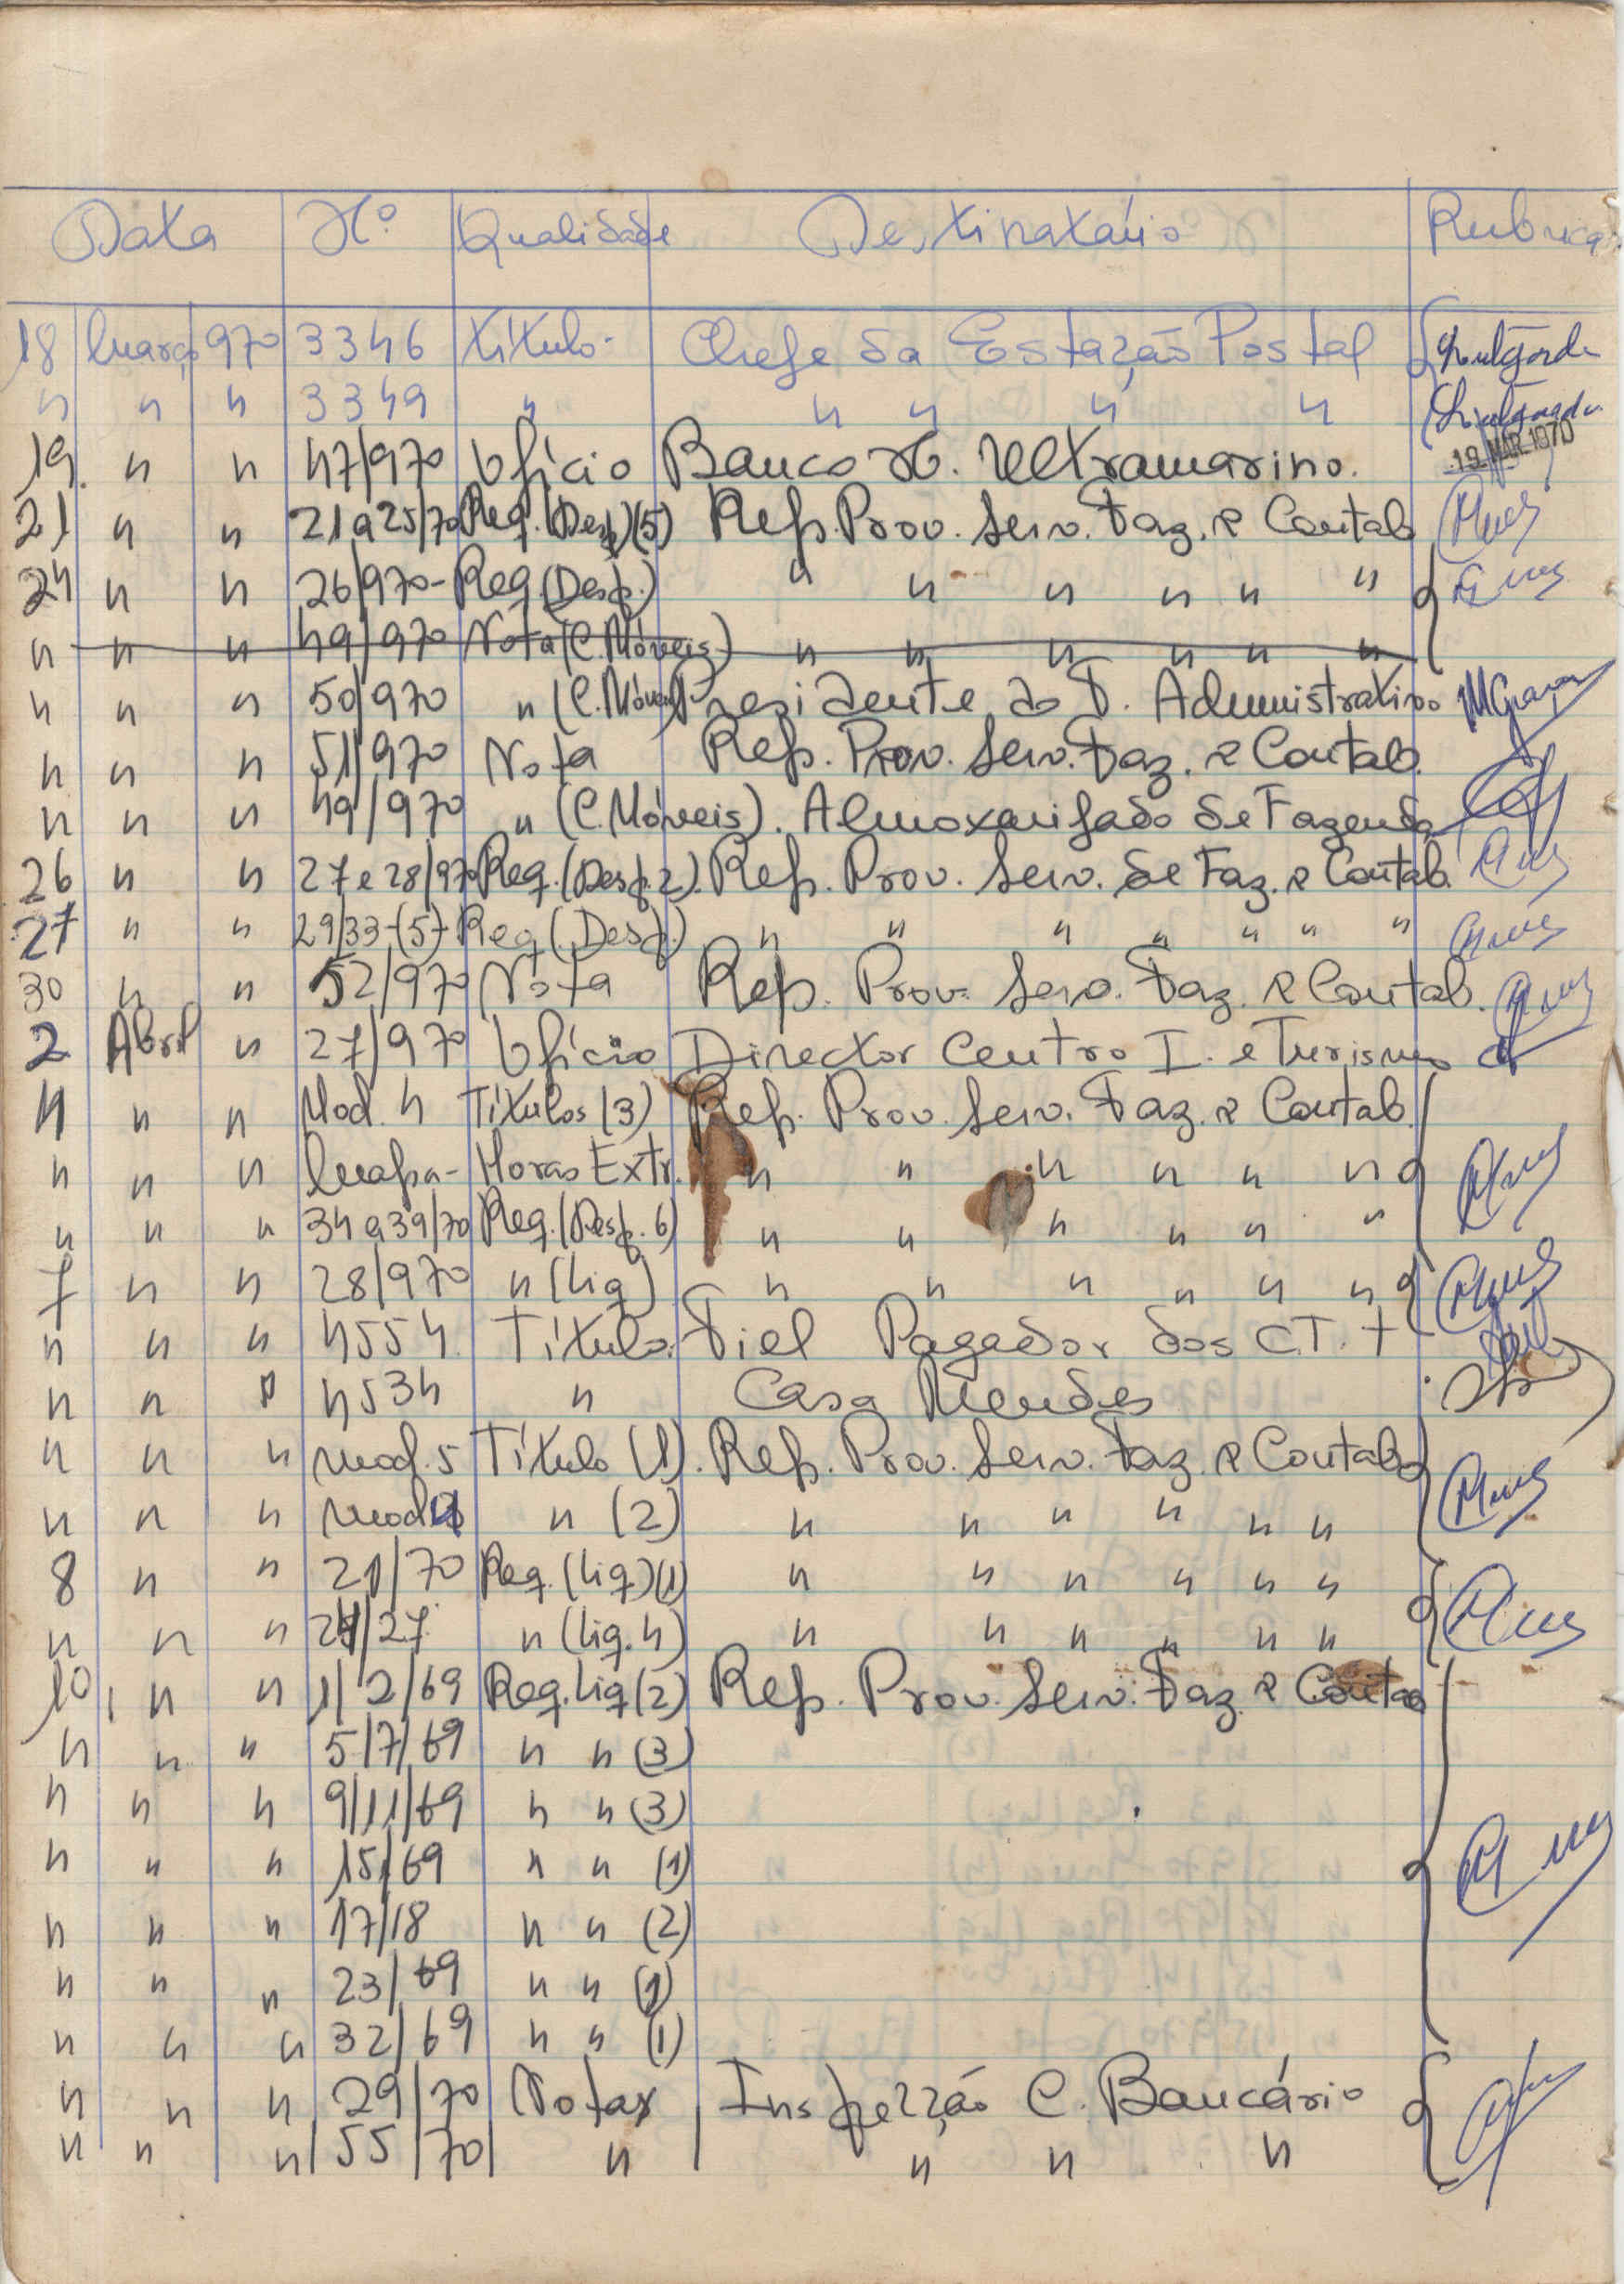 Data Nº Qualidade Destinatário Rubrica
18 Março 970 3346 Título. Chefe da Estação Postal
" " " 3349 " " " " "
19. " " 47/970 Ofício Banco N. Ultramarino. 19 MAR. 1970
21 " " 21 a 25/70 Req. (Desp.) (5) Rep. Prov. Serv. Faz. e Contab
24 " " 26/970- Req. (Desp.) " " " " " "
" " " 49/970 Nota (C. Móveis) " " " " " "
" " " 50/970 " (C. Móveis) Presidente do T. Administrativo
" " " 51/970 Nota Rep. Prov. Serv. Faz. e Contab.
" " " 49/970 " (C. Móveis). Almoxarifado de Fazenda
26 " " 27 e 28/970 Req. (Desp. 2). Rep. Prov. Serv. de Faz. e Contab.
27 " " 29/33-(5)- Req. (Desp.) " " " " " " "
30 " " 52/970 Nota Rep. Prov. Serv. Faz. e Contab.
2 Abril " 27/970 Ofício Director Centro I. e Turismo
4 " " Mod. 4 Títulos (3) Rep. Prov. Serv. Faz. e Contab.
" " " Mapa- Horas Extr. " " " " " "
" " " 34 a 39/70 Req. (Desp. 6) " " " " " "
7 " " 28/970 " (Liq) " " " " " "
" " " 4554 Título. Fiel Pagador dos C.T.T
" " " 4534 " Casa Mendes
" " " Mod. 5 Título (1). Rep. Prov. Serv. Faz. e Contab
" " " Mod. " (2) " " " " " "
8 " " 21/70 Req. (Liq.) (1) " " " " " "
" " " 24/27. " (Liq. 4) " " " " " "
10, " " 1/2/69 Req. Liq (2) Rep. Prov. Serv. Faz. e Contab
" " " 5/7/69 " " (3)
" " " 9/11/69 " " (3)
" " " 15/69 " " (1)
" " " 17/18 " " (2)
" " " 23/69 " " (1)
" " " 32/69 " " (1)
" " " 29/70 Notas Inspecção C. Bancário
" " " 55/70 " " " "